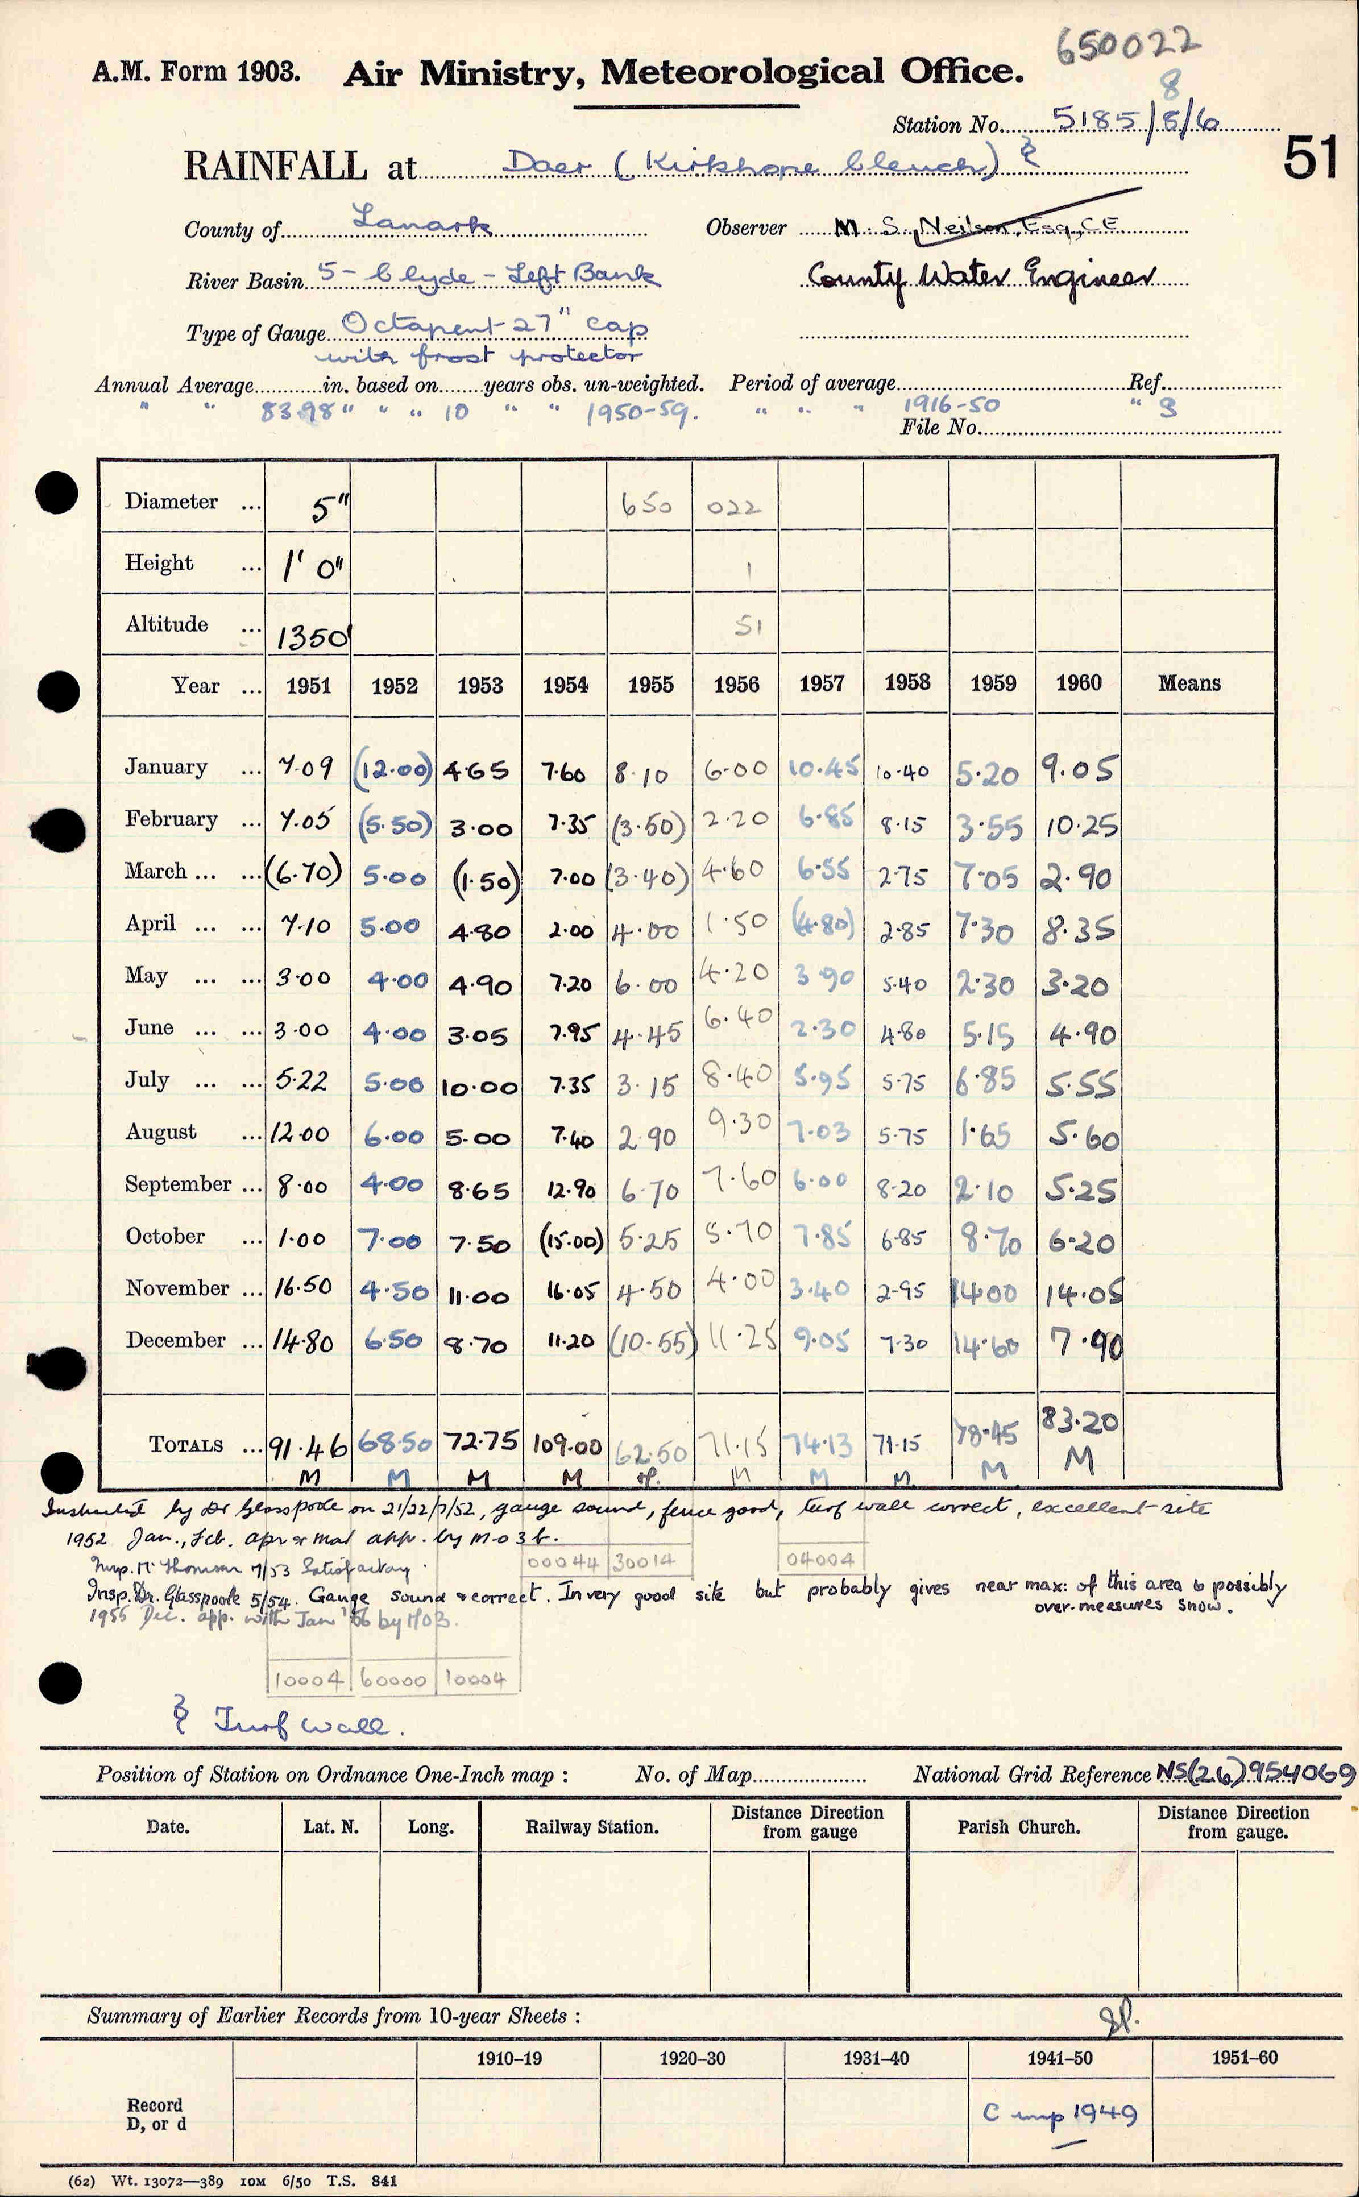 650022
A.M. Form 1903. Air Ministry, Meteorological Office.
8
Station No. 5185/8/6
51
RAINFALL at Daer (Kirkhope Cleuch) &
County of Lanark Observer M. S. Neilson, Esq., C.E.
River Basin 5 - Clyde - Left Bank County Water Engineer
Type of Gauge Octapent 27" cap
with frost protector
Annual Average in. based on years obs. un-weighted. Period of average Ref.
" " 83.98 " " " 10 " " 1950-59. " " " 1916-50 " S
File No.
Diameter ... 5" 650 022
Height ... 1' 0" 1
Altitude ... 1350' 51
Year ... 1951 1952 1953 1954 1955 1956 1957 1958 1959 1960 Means
January ... 7.09 (12.00) 4.65 7.60 8.10 6.00 10.45 10.40 5.20 9.05
February ... 7.05 (5.50) 3.00 7.35 (3.50) 2.20 6.85 8.15 3.55 10.25
March ... ... (6.70) 5.00 (1.50) 7.00 (3.40) 4.60 6.55 2.75 7.05 2.90
April ... ... 7.10 5.00 4.80 2.00 4.00 1.50 (4.80) 2.85 7.30 8.35
May ... ... 3.00 4.00 4.90 7.20 6.00 4.20 3.90 5.40 2.30 3.20
June ... ... 3.00 4.00 3.05 7.95 4.45 6.40 2.30 4.80 5.15 4.90
July ... ... 5.22 5.00 10.00 7.35 3.15 8.40 5.95 5.75 6.85 5.55
August ... 12.00 6.00 5.00 7.40 2.90 9.30 7.03 5.75 1.65 5.60
September ... 8.00 4.00 8.65 12.90 6.70 7.60 6.00 8.20 2.10 5.25
October ... 1.00 7.00 7.50 (15.00) 5.25 5.70 7.85 6.85 8.70 6.20
November ... 16.50 4.50 11.00 16.05 4.50 4.00 3.40 2.95 14.00 14.05
December ... 14.80 6.50 8.70 11.20 (10.55) 11.25 9.05 7.30 14.60 7.90
TOTALS ... 91.46 68.50 72.75 109.00 62.50 71.15 74.13 71.15 78.45 83.20
M M M M M M M M M
by Dr Glasspoole on 21/22/7/52, gauge sound, fence good, turf wall correct, excellent site
1952 Jan., Feb. Apr & Mar app. by M.O 3 b.
Insp. Mr Thomson 7/53 Satisfactory.
00044 30014 04004
Insp. Dr. Glasspoole 5/54. Gauge sound & correct. In very good site but probably gives near max: of this area & possibly
over-measures snow.
1955 Dec. app. with Jan '56 by MO3.
10004 60000 10004
& Turf wall.
Position of Station on Ordnance One-Inch map : No. of Map National Grid Reference NS(26)954069
Date. Lat. N. Long. Railway Station. Distance Direction from gauge Parish Church. Distance Direction from gauge.
Summary of Earlier Records from 10-year Sheets :
1910–19 1920–30 1931–40 1941–50 1951–60
Record
D, or d
C imp 1949
(62) Wt. 13072—389 10M 6/50 T.S. 841